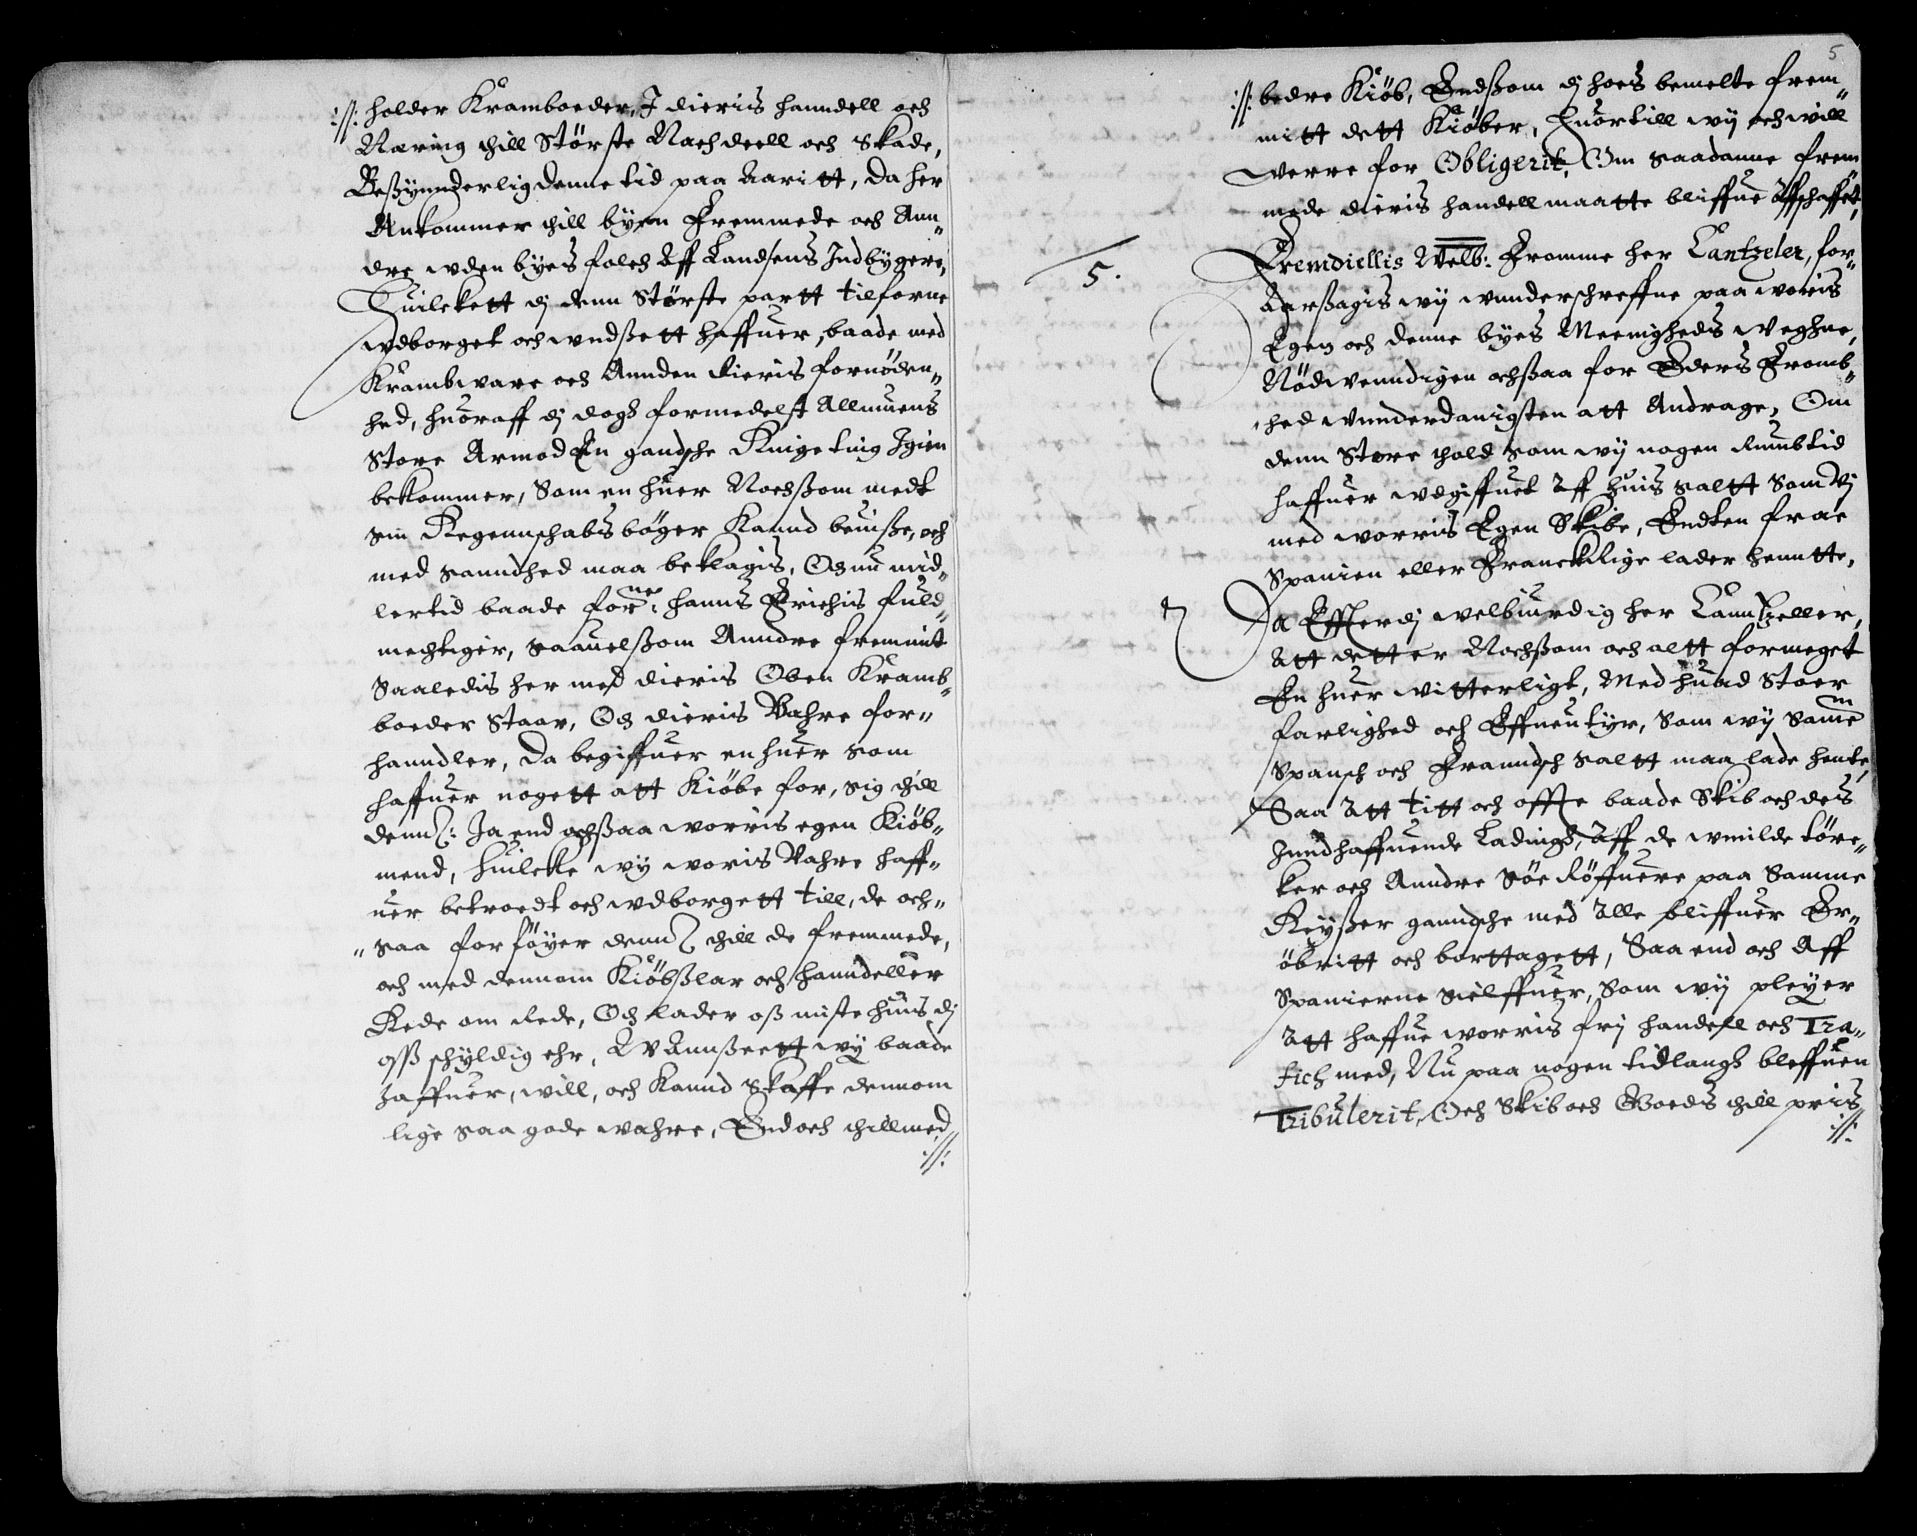 :/: holder Kramboeder, I dieris hanndell och
Næring thill Største Nachdeell och Skade,
Besßynnderlig denne tid paa Aaritt, da her
Ankommer thill byen Fremmede och Ann„
dre vden byes folch Aff Landsens Indbygere,
Huilckett dj denn Største partt tilforne
vdborget och vndßett haffuer, baade med
Krambvare och Annden dieris fornøden„
hed, huoraff dj dogh formedelst Allmuens
Store Armod En gandsche Ringe ting Igien
bekommer, Som en huer Nochßom medt
sin Regennschabs bøger Kannd beuiße, och
med sanndhed maa beklagis, Och nu mid„
lertid baade forne: Hanns Erichis fuld„
mechtiger, saauelßom Anndre fremmit
Saaledis her med dieris Oben Kramb„
boeder Staar, Och dieris Vahre for„
hanndler, da begiffuer en huer som
haffuer nogett att Kiøbe for, sig thill
denn: Ja end ochßaa worris egen Kiøb„
mend, huilcke wy woris Vahre haff„
uer betroedt och vdborgett till, de och„
„saa forføyer denn thill de fremmede,
och med dennom Kiøbßlar och hanndeller
Rede om Rede, Och lader oß miste huis dj
oß schyldig ehr, Wannßeett wy baade
haffuer, will, och Kannd Skaffe dennom
lige saa gode wahre, End och thillmed
:/:
5
:/: bedre Kiøb, Endßom dj hoes bemelte frem„
mitt dett Kiøber, huortill wy och will
werre for Obligerit, Om saadanne frem
mede dieris handell maatte bliffue Affschaffet,
5.
Fremdiellis Welb: Fromme her Cantzeler, for„
Aarßagis wy vnnderschreffne paa woris
Egen och denne byes Meenigheds weghne,
Nødwenndigen ochßaa for Eders Fromb„
hed vnnderdanigsten att Andrage, Om
denn Store thold som wy nogen Rumb tid
haffuer vdgiffuet Aff huis saltt Som Vj
med worris Egen Skibe, Endten frae
Spanien eller Franckrige lader hennte,
Da Effterdj welbiurdig her Canntzeller,
Att dett er Nochßom och altt formeget
En huer witterligt, Med huad Stoer
farlighed och Effuentyr, Som wy Samme
Spansch och Franndsch saltt maa lade hente,
Saa Att titt och offte baade Skib och des
Inndhaffuende Ladingh, Aff de vmilde tøre„
ker och Anndre Søe Røffuere paa Samme
Reyßer ganndsche med Alle bliffuer Er„
øbritt och borttagett, Saa end och Aff
Spanierne sielffuer, Som wy pleyer
Att haffue worris frj handell och Tra„
fich med, Nu paa nogen tidlangh bleffuen
Tribulerit, Och Skib och Goeds thill priis
:/: